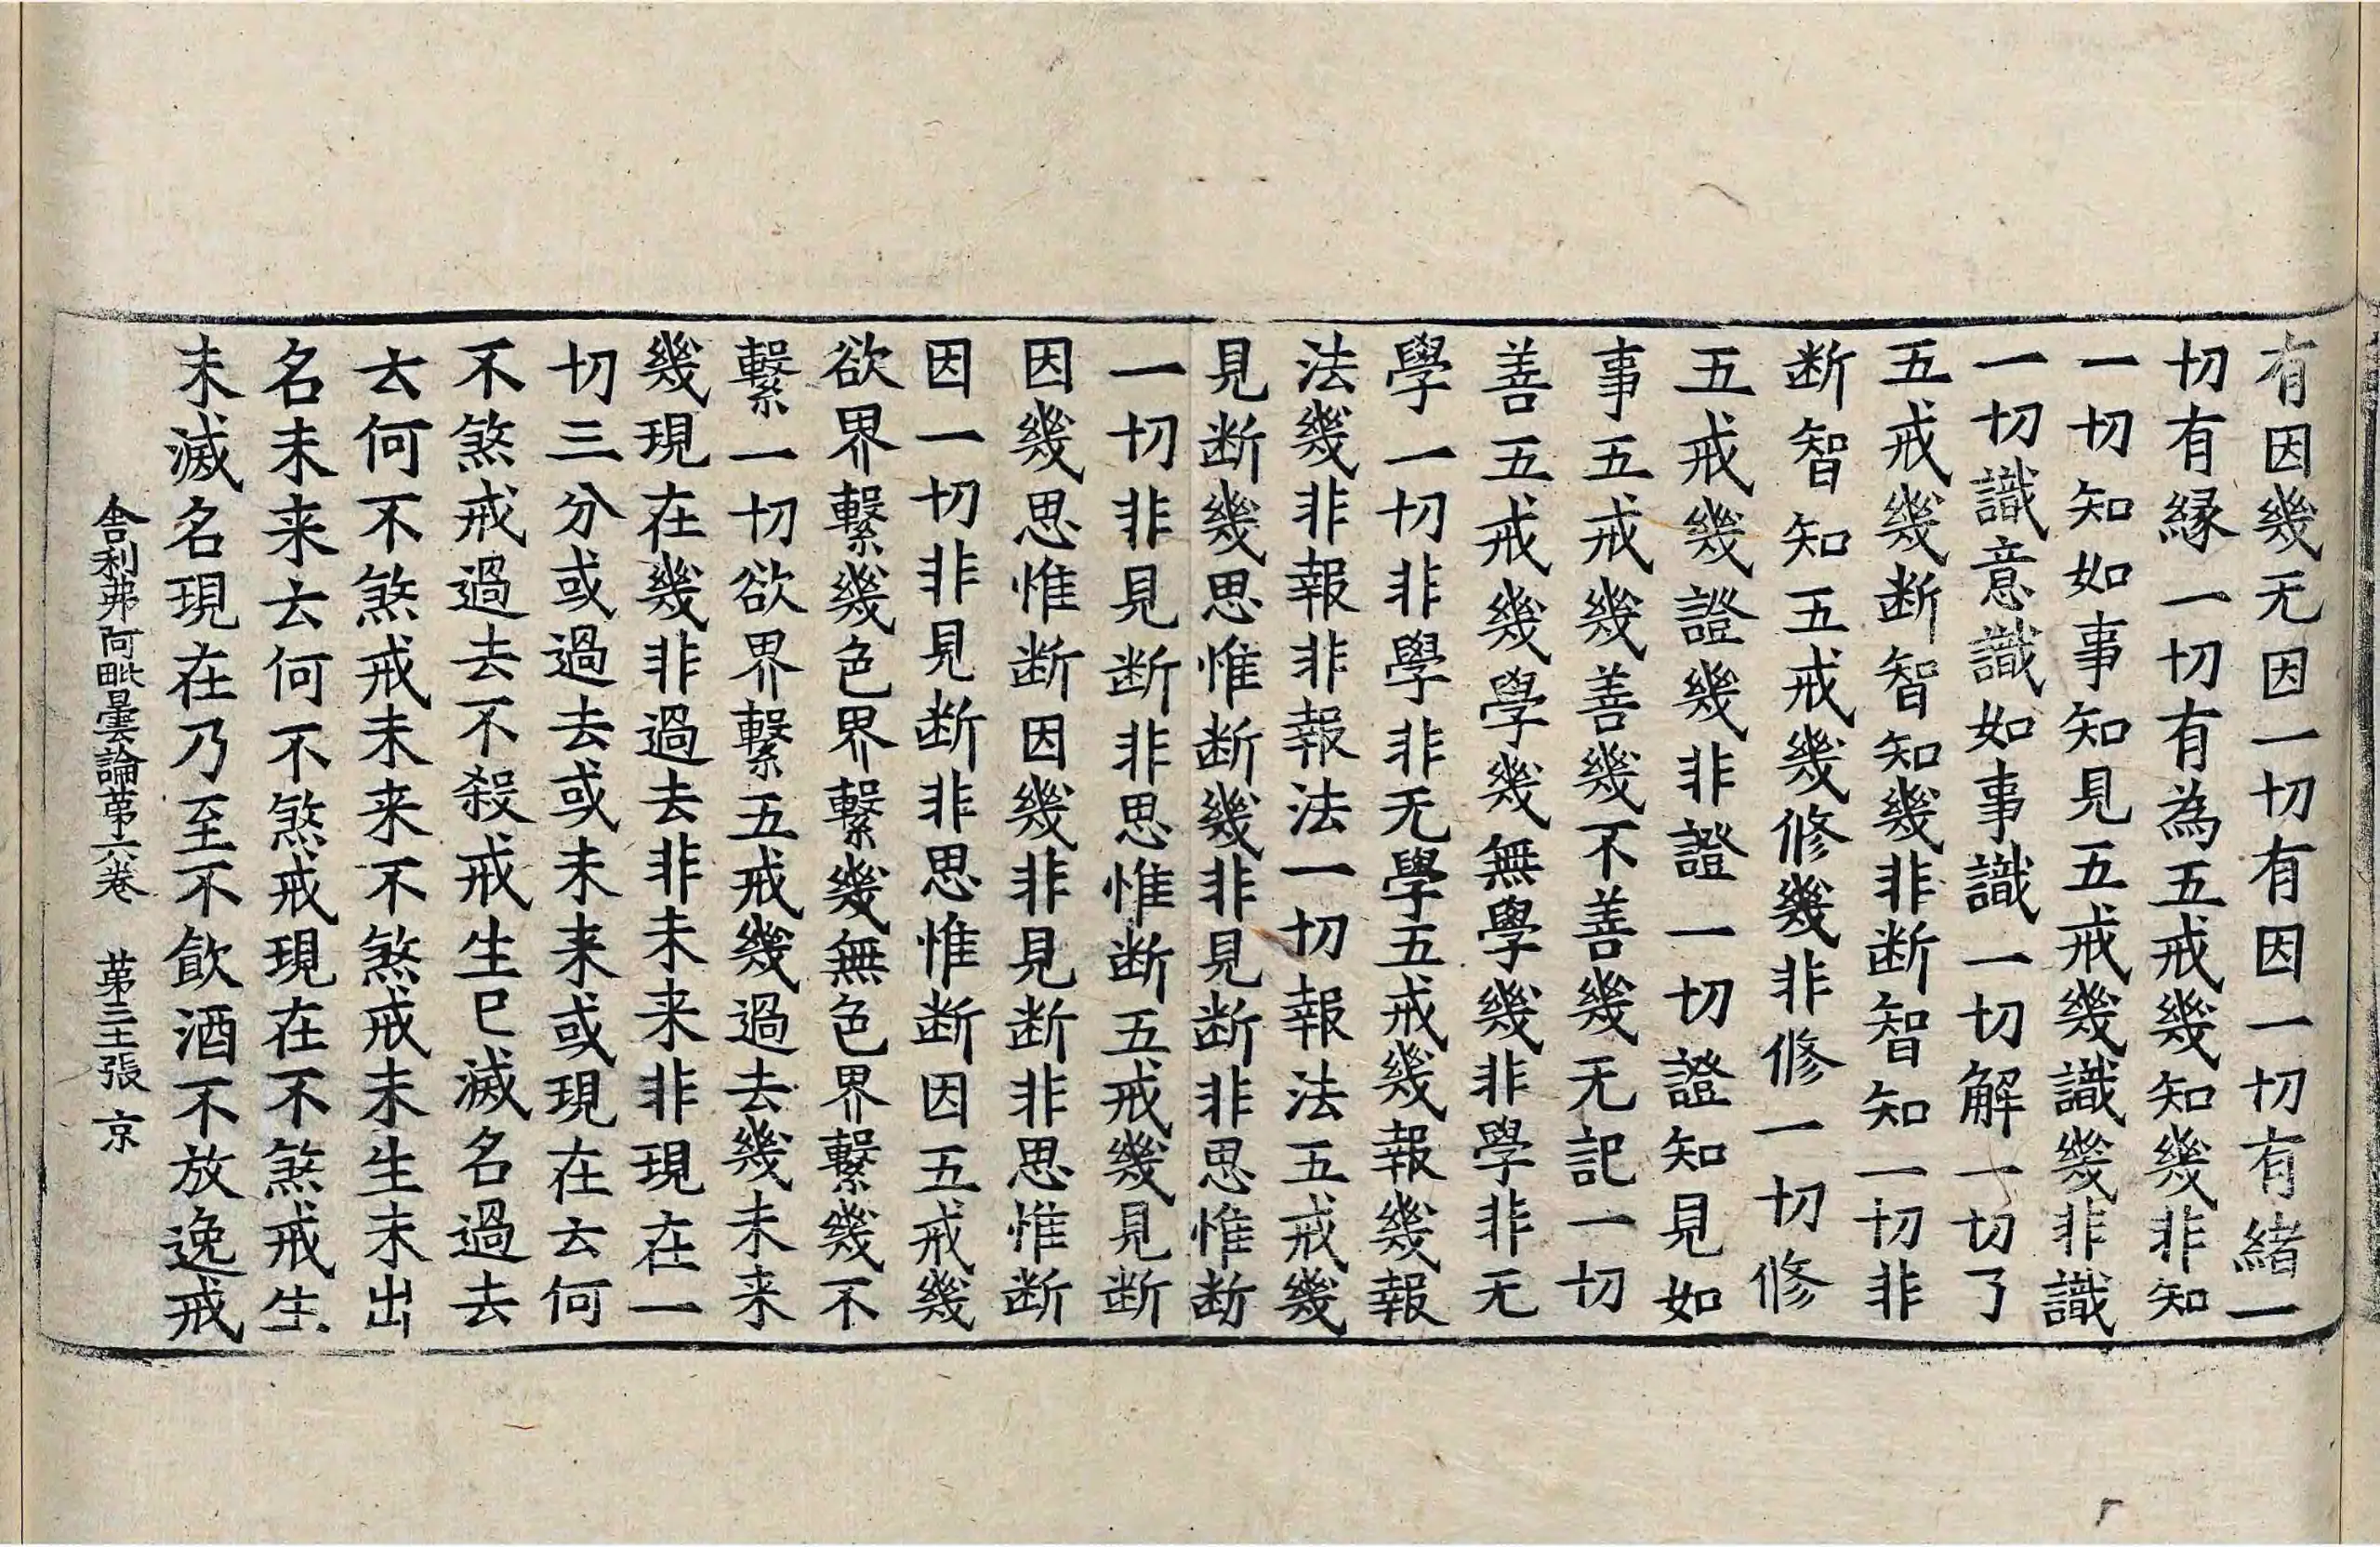 有因幾无因一切有因一切有緒一
切有縁一切有為五戒幾知幾非知
一切知如事知見五戒幾識幾非識
一切識意識如事識一切解一切了
五戒幾断智知幾非断智知一切非
断智知五戒幾修幾非修一切修
五戒幾證幾非證一切證知見如
事五戒幾善幾不善幾无記一切
善五戒幾學幾無學幾非學非无
學一切非學非无學五戒幾報幾報
法幾非報非報法一切報法五戒幾
見断幾思惟断幾非見断非思惟断
一切非見断非思惟断五戒幾見断
因幾思惟断因幾非見断非思惟断
因一切非見断非思惟断因五戒幾
欲界繫幾色界繫幾無色界繫幾不
繫一切欲界繫五戒幾過去幾未来
幾現在幾非過去非未来非現在一
切三分或過去或未来或現在云何
不煞戒過去不殺戒生已滅名過去
云何不煞戒未来不煞戒未生未出
名未来云何不煞戒現在不煞戒生
未滅名現在乃至不飲酒不放逸戒
舎利弗阿毗曇論苐六卷 苐三王張 京